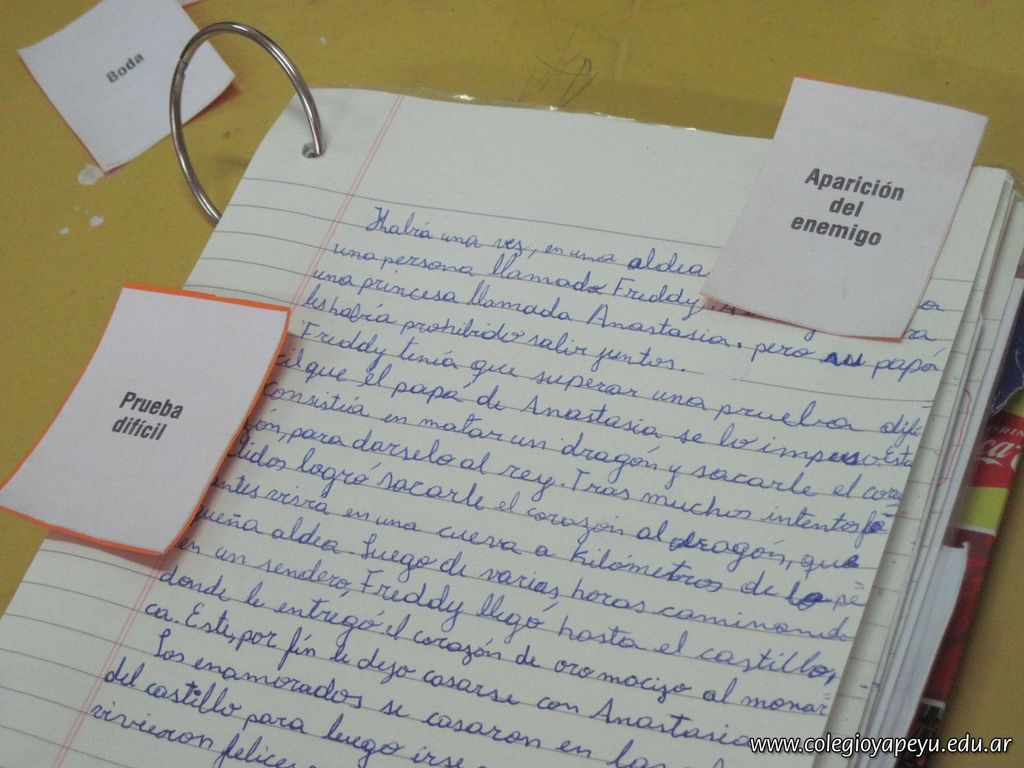 Boda
Aparición
del
enemigo
Prueba
difícil
Habia una vez, en una aldea
una persona llamada Freddy.
una princesa llamada Anastasia. pero su papá
les había prohibido salir juntos.
Freddy tenía que superar una prueba difí-
cil que el papá de Anastasia se lo impuso. Esta
consistía en matar un dragón y sacarle el cora-
zón, para darselo al rey. Tras muchos intentos fa-
llidos logró sacarle el corazón al dragón, que
antes vivia en una cueva a Kilómetros de la pe-
queña aldea. Luego de varias horas caminando
en un sendero, Freddy llegó hasta el castillo,
donde le entregó el corazón de oro macizo al monar-
ca. Este, por fín le dejo casarse con Anastasia
Los enamorados se casaron en
del castillo para luego irse
vivieron felices
www.colegioyapeyu.edu.ar